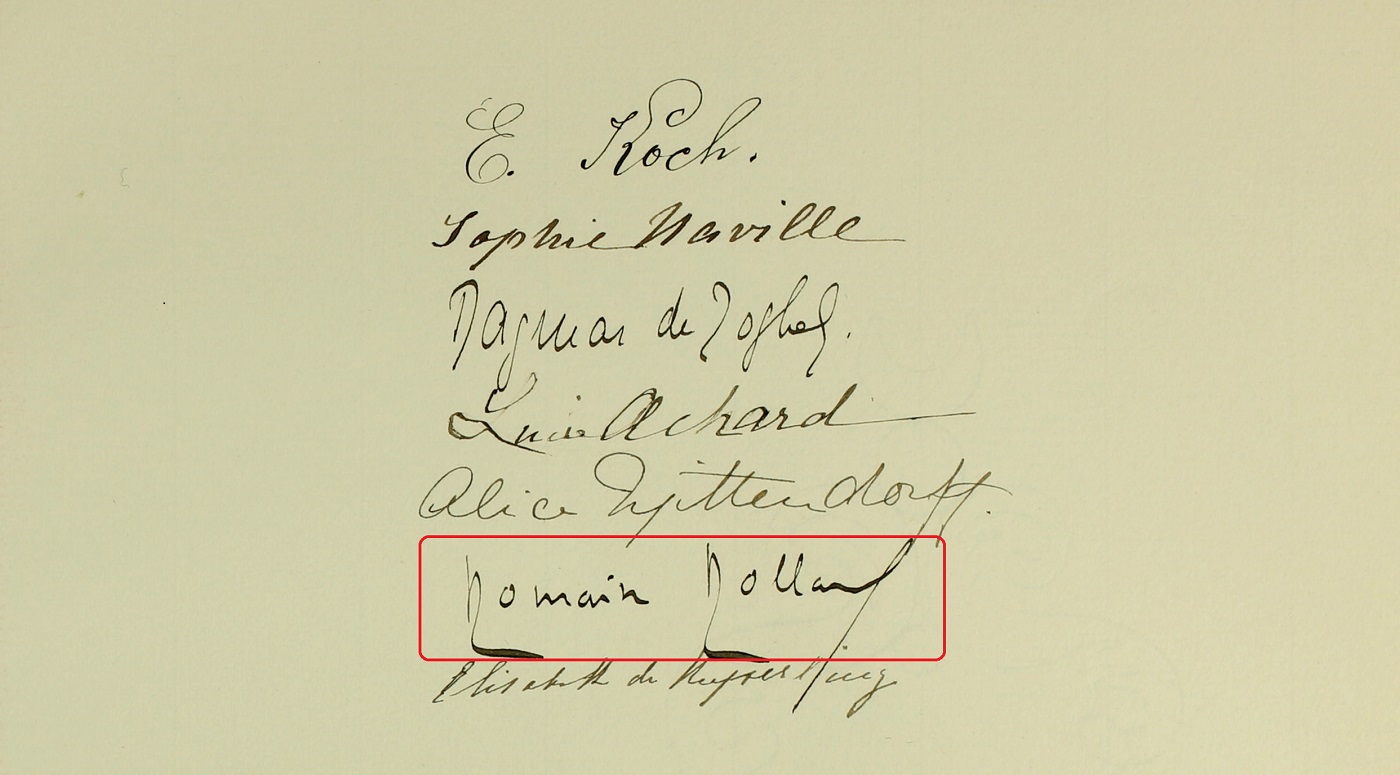 E. Koch.
Sophie Naville
Dagmar de
Achard
Alice
Romain Rolland
Elisabeth de Keyserling